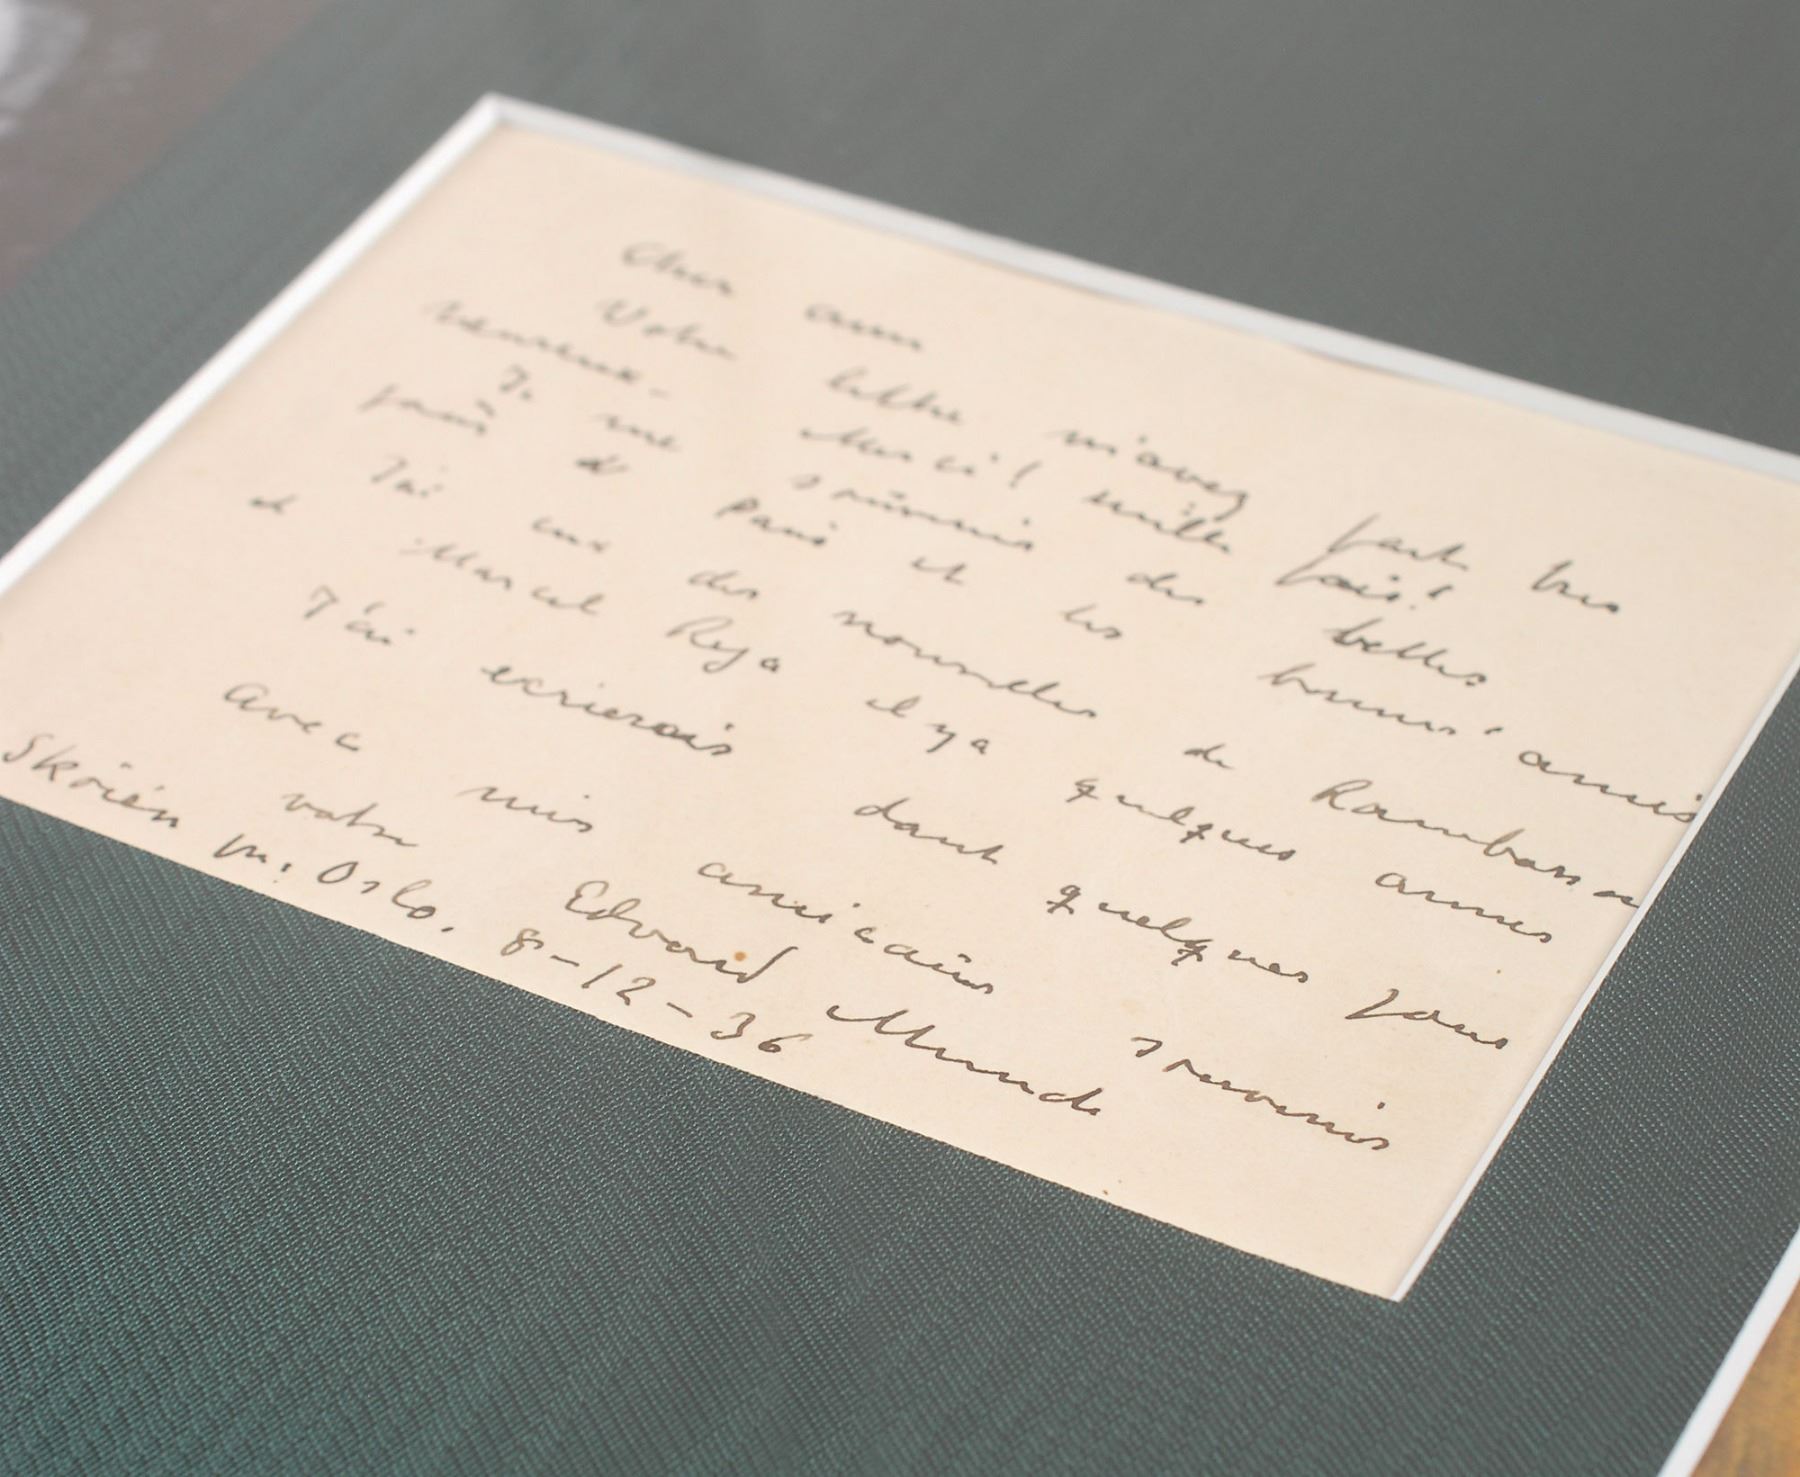 Cher ami
Votre lettre m'avez fait tres
heureux - Merci! mille fois!
Je me souvenis des belles
jours à Paris et les bonns amis
J'ai eus des nouvelles de Rambosson
et Marcel Reja il y a quelques annes
J'ai ecrierais dant quelques jours
avec mis amicaüs souvenis
votre Edvard Munch
Skøien pr. Oslo. 8-12-36